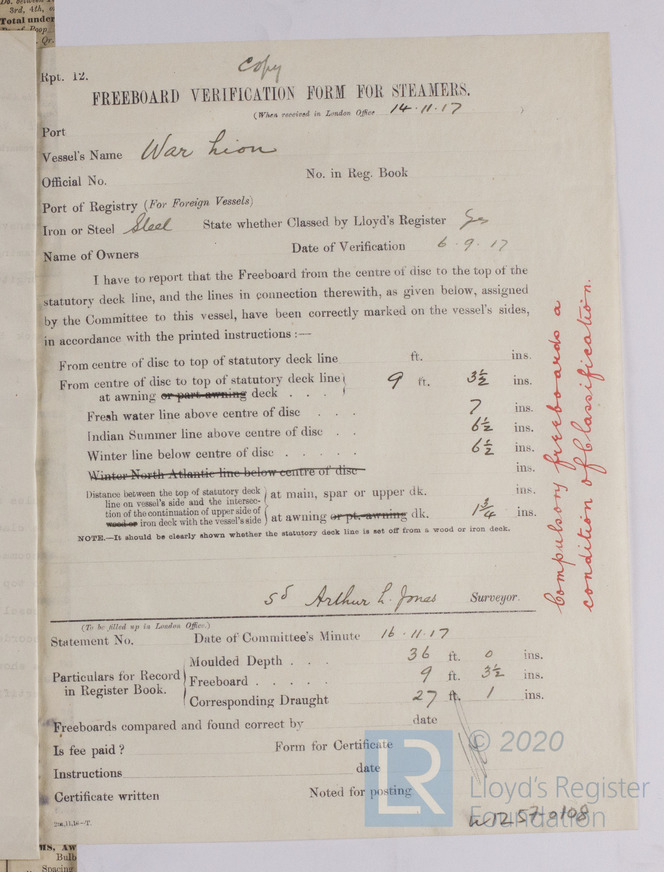 3rd, 4th,
Total under
Qr.
Rpt. 12.
Copy
FREEBOARD VERIFICATION FORM FOR STEAMERS.
(When received in London Office 14.11.17 )
Port
Vessel's Name War Lion
Official No. No. in Reg. Book
Port of Registry (For Foreign Vessels)
Iron or Steel Steel State whether Classed by Lloyd's Register Yes
Name of Owners Date of Verification 6.9.17
I have to report that the Freeboard from the centre of disc to the top of the
statutory deck line, and the lines in connection therewith, as given below, assigned
by the Committee to this vessel, have been correctly marked on the vessel's sides,
in accordance with the printed instructions :—
From centre of disc to top of statutory deck line ft. ins.
From centre of disc to top of statutory deck line 9 ft. 3½ ins.
at awning or part awning deck . . .
Fresh water line above centre of disc . . . 7 ins.
Indian Summer line above centre of disc . . 6½ ins.
Winter line below centre of disc . . . . . 6½ ins.
Winter North Atlantic line below centre of disc ins.
Distance between the top of statutory deck
line on vessel's side and the intersec-
tion of the continuation of upper side of
wood or iron deck with the vessel's side
at main, spar or upper dk. ins.
at awning or pt. awning dk. 1¾ ins.
NOTE.—It should be clearly shown whether the statutory deck line is set off from a wood or iron deck.
Compulsory freeboards a
condition of Classification.
Sd Arthur L. Jonas Surveyor.
(To be filled up in London Office.)
Statement No. Date of Committee's Minute 16.11.17
Particulars for Record
in Register Book.
Moulded Depth . . . 36 ft. 0 ins.
Freeboard . . . . . 9 ft. 3½ ins.
Corresponding Draught 27 ft. 1 ins.
Freeboards compared and found correct by date
Is fee paid ? Form for Certificate
Instructions date
Certificate written Noted for posting
LR
© 2020
Lloyd's Register
Foundation
W1257-0108
Bulb
Spacing